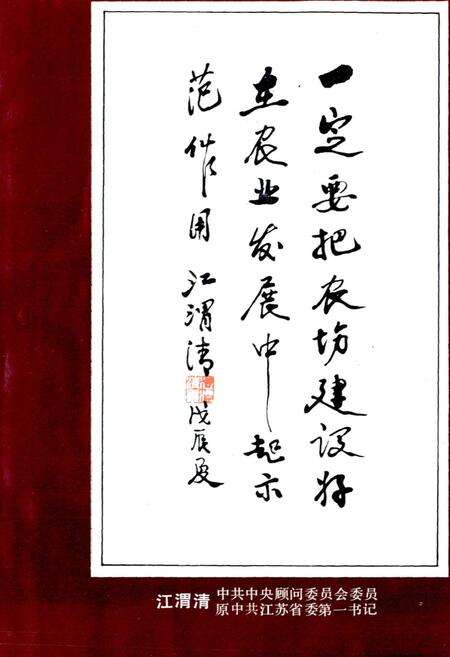 一定要把农场建设好
在农业发展中起示
范作用 江渭清 戊辰夏
江渭清 中共中央顾问委员会委员
原中共江苏省委第一书记